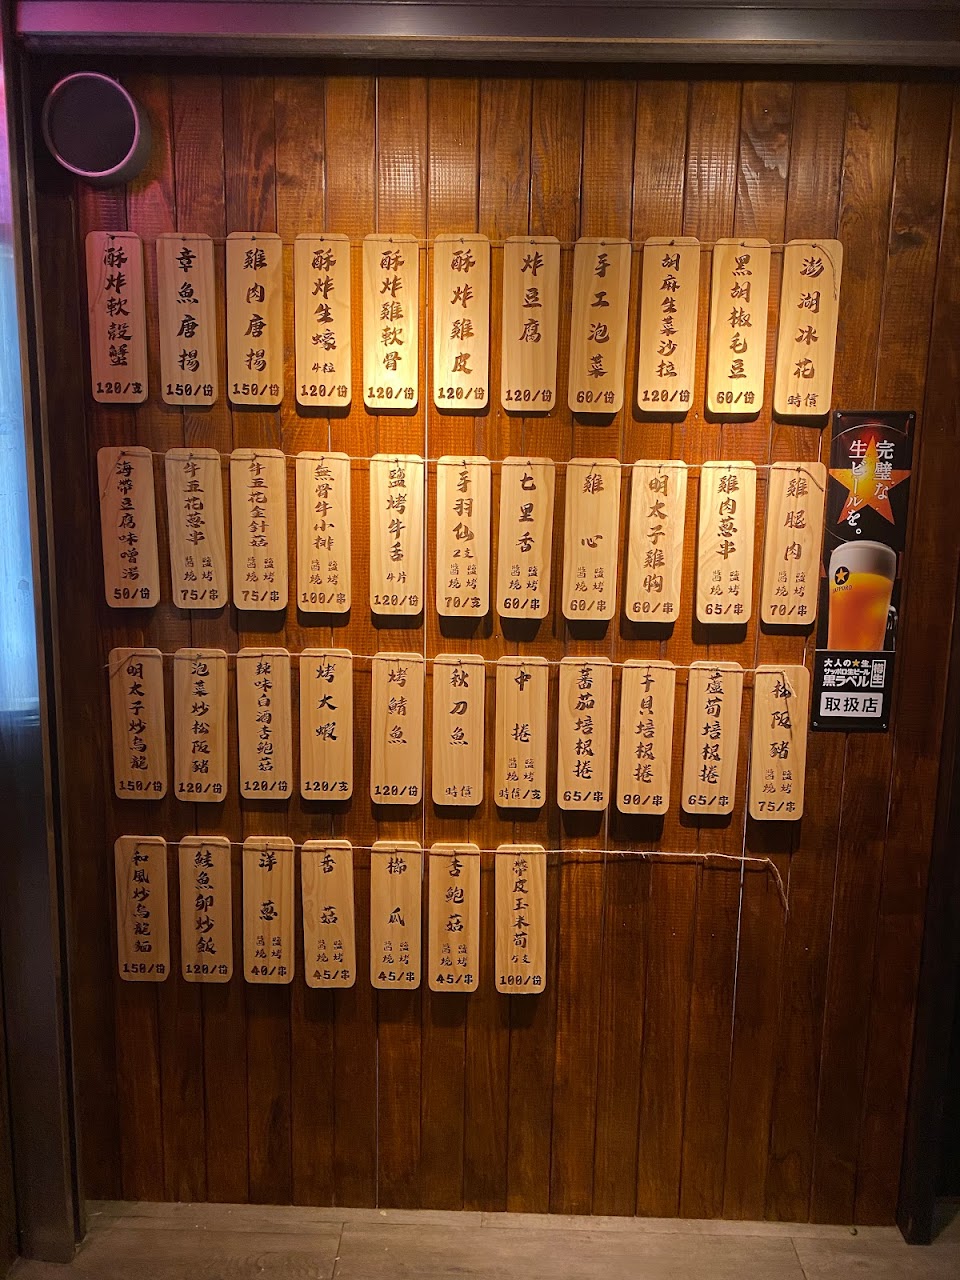 澎湖冰花
時價
黑胡椒毛豆
60/份
胡麻生菜沙拉
120/份
手工泡菜
60/份
炸豆腐
120/份
酥炸雞皮
120/份
酥炸雞軟骨
120/份
酥炸生蠔
4粒
120/份
雞肉唐揚
150/份
章魚唐揚
150/份
酥炸軟殼蟹
120/支
雞腿肉
鹽烤
醬燒
70/串
雞肉蔥串
鹽烤
醬燒
65/串
明太子雞胸
60/串
雞心
鹽烤
醬燒
60/串
七里香
鹽烤
醬燒
60/串
手羽仙
2支
鹽烤
醬燒
70/支
鹽烤牛舌
4片
120/份
無骨牛小排
鹽烤
醬燒
100/串
牛五花金針菇
鹽烤
醬燒
75/串
牛五花蔥串
鹽烤
醬燒
75/串
海帶豆腐味噌湯
50/份
松阪豬
鹽烤
醬燒
75/串
蘆筍培根捲
65/串
干貝培根捲
90/串
蕃茄培根捲
65/串
中捲
鹽烤
醬燒
時價/支
秋刀魚
時價
烤鯖魚
120/份
烤大蝦
120/支
辣味白酒杏鮑菇
120/份
泡菜炒松阪豬
120/份
明太子炒烏龍
150/份
帶皮玉米筍
100/份
杏鮑菇
鹽烤
醬燒
45/串
櫛瓜
鹽烤
醬燒
45/串
香菇
鹽烤
醬燒
45/串
洋蔥
鹽烤
醬燒
40/串
鮭魚卵炒飯
120/份
和風炒烏龍麵
150/份
完璧な
生ビールを。
SAPPORO
大人の★生。
サッポロ生ビール
黒ラベル
樽生
取扱店